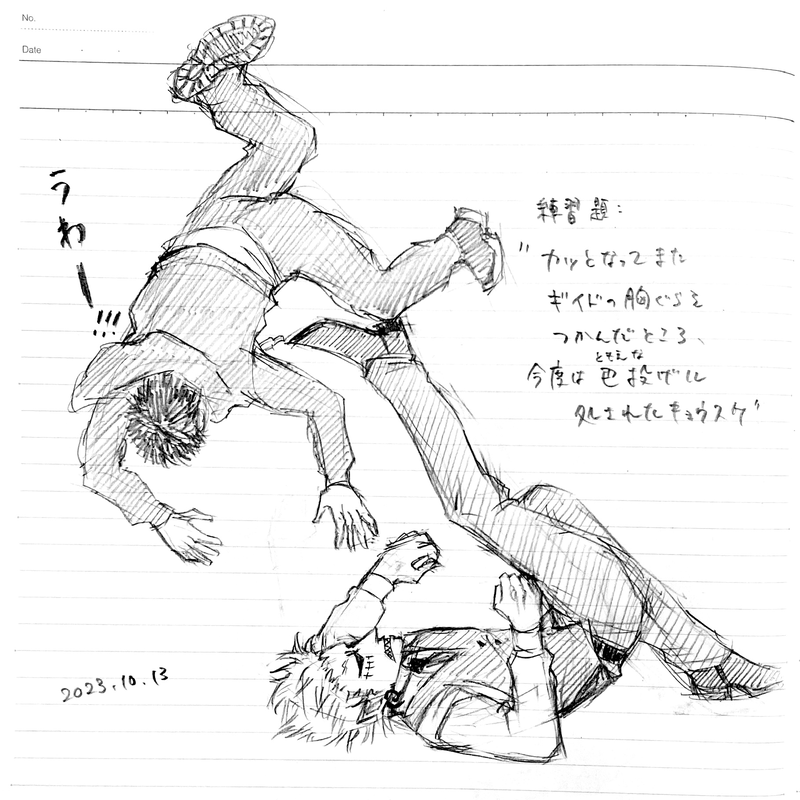 No.
Date
うわー!!!
練習題:
"カッとなってまた
ギイドの胸ぐらを
つかんだところ、
ともえな
今度は巴投げに
処されたキョウスケ"
2023.10.13